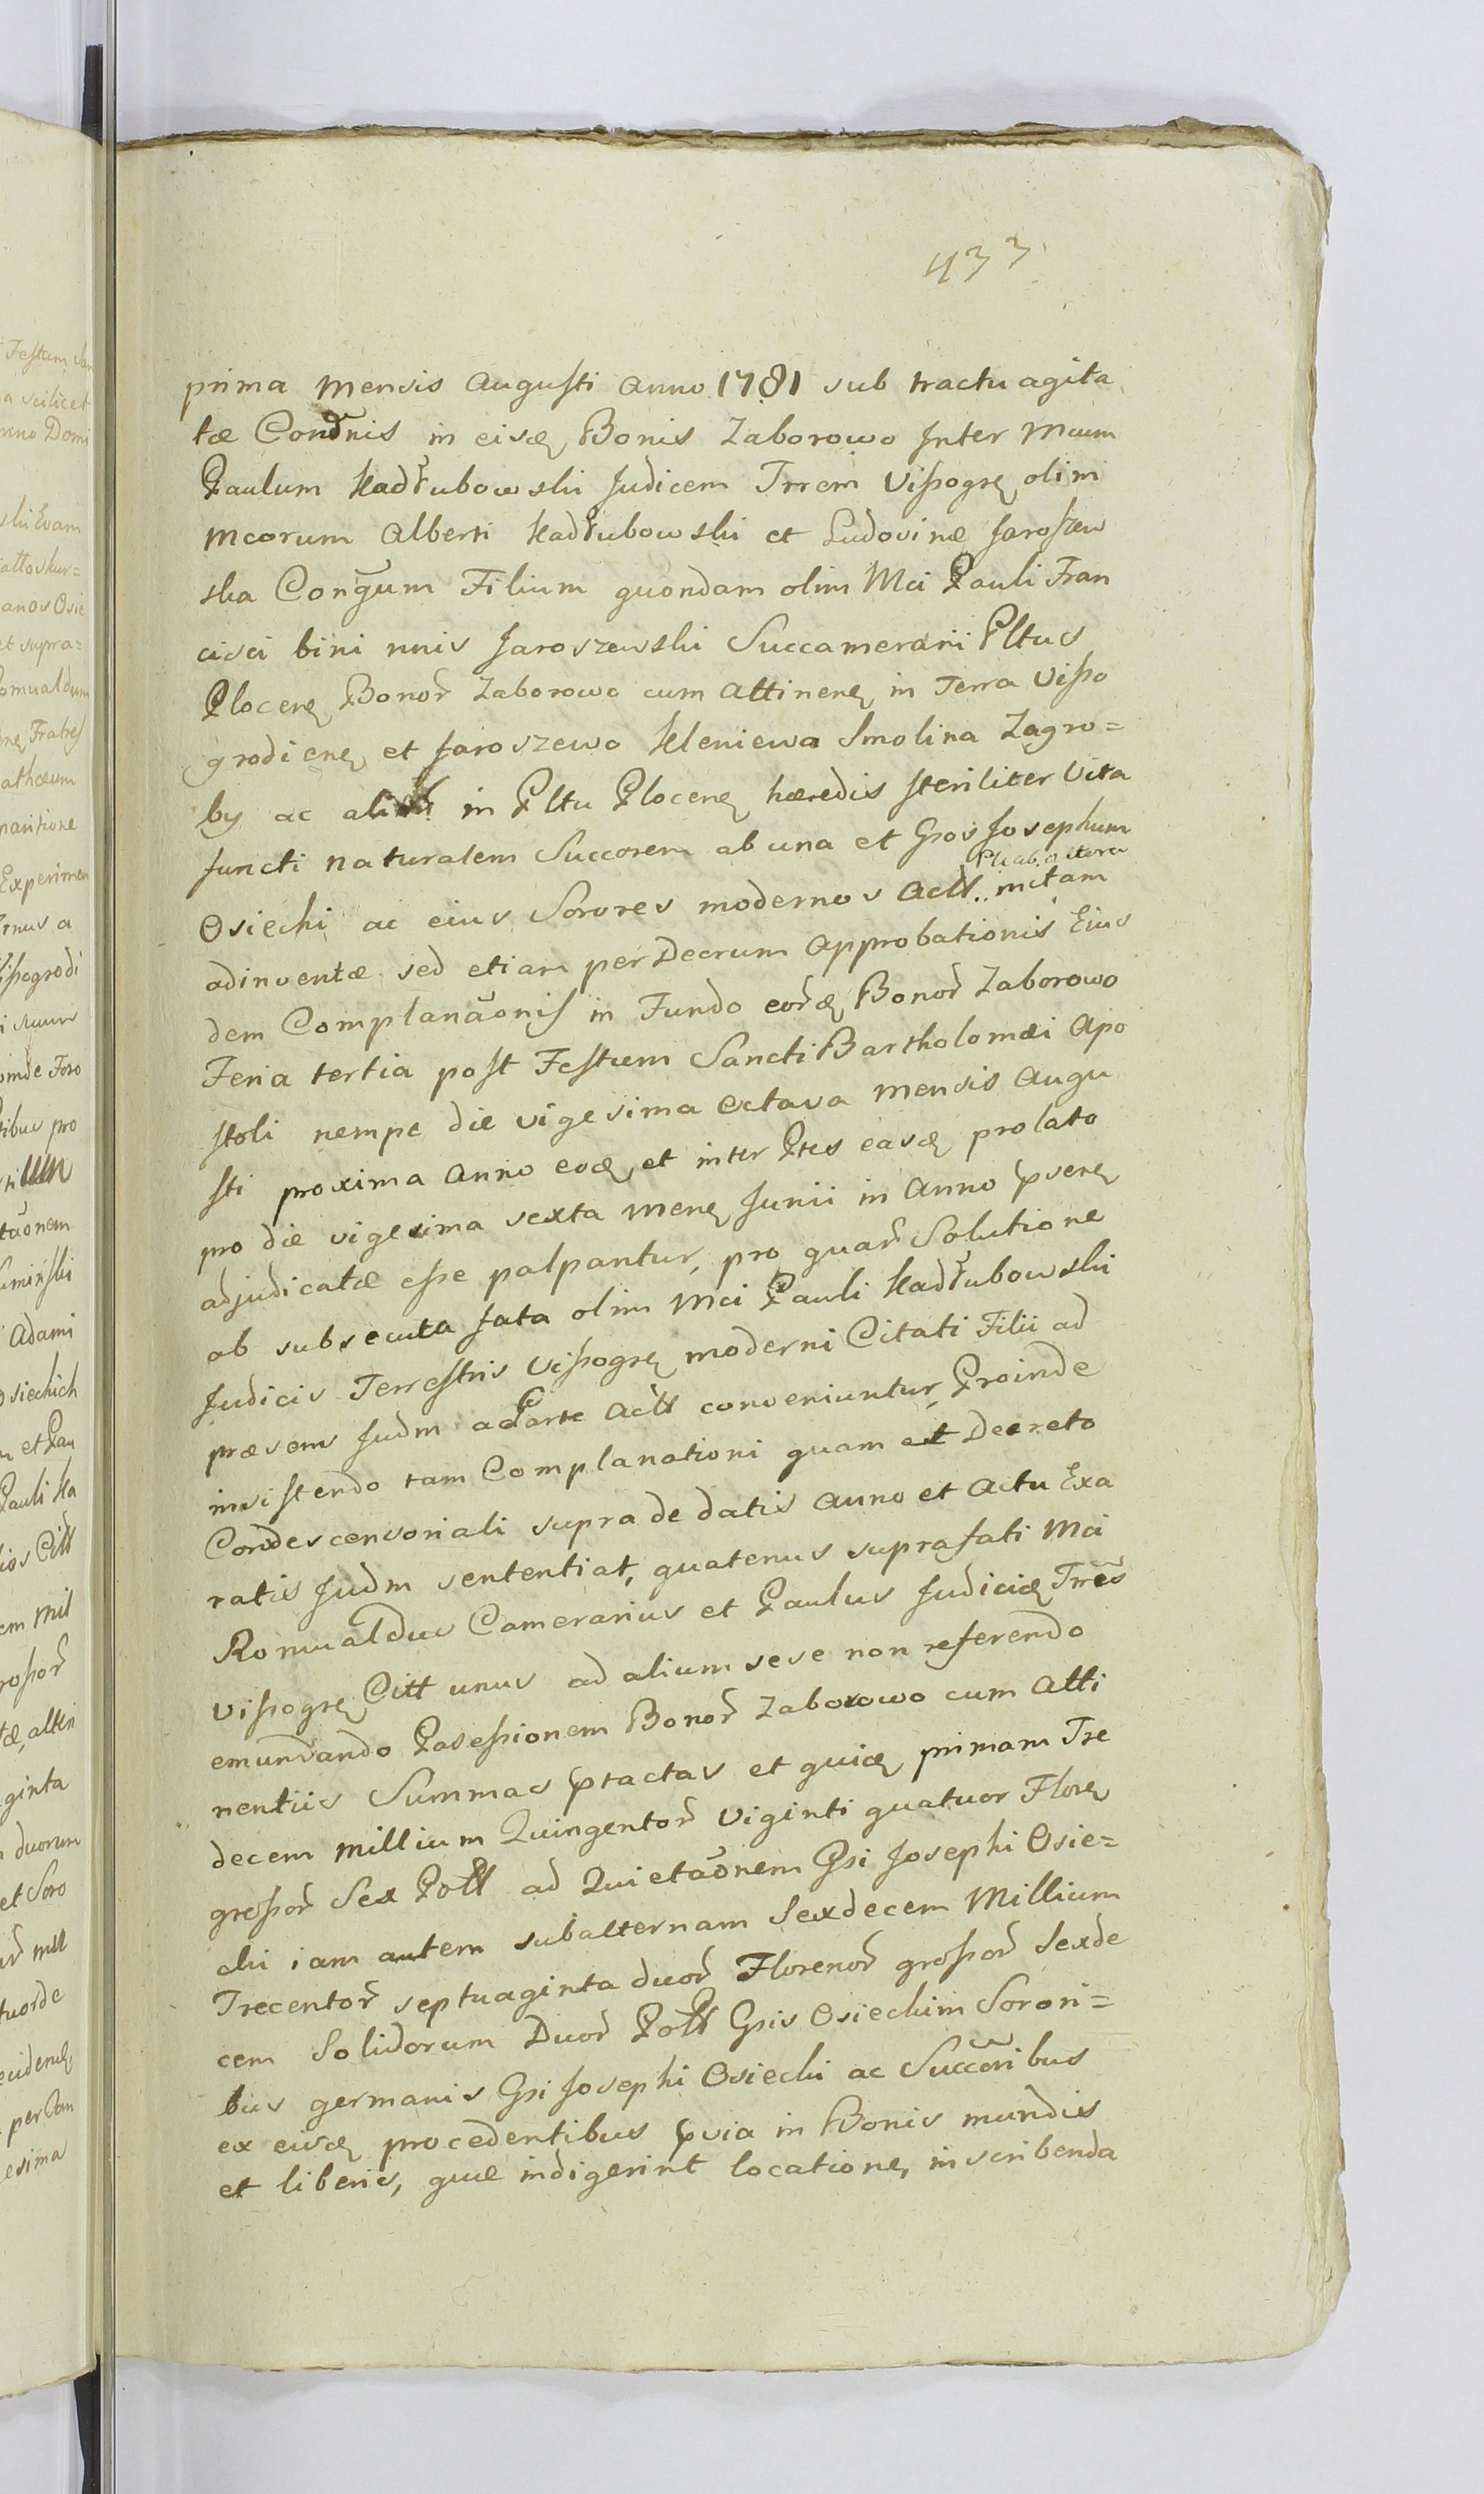 433
prima mensis Augusti Anno 1781 sub tractu agita
tæ Condnis in eisdę Bonis Zaborowo Inter Mcum
Paulum Kadłubowski Judicem Trrem Vißogrę olim
Mcorum Alberti Kadłubowski et Ludovinæ Jaroszew
ska Congum Filium quondam olim Mci Pauli Fran
cisci bini nnis Jaroszewski Succamerarii Pltus
Plocenę Bonor̃ Zaborowo cum Attinenę in Terra Vißo
grodienę et Jaroszewo Kleniewo Smolina Zagro=
by ac in Pltu Plocenę hæredis steriliter Vita
functi naturalem Succorem ab una et Gsos Josephum
Osiecki ac eius Sorores modernos Actt.. mctam
adinventæ sed etiam per Decrum Approbationis Eius
dem Complanaõnis in Fundo eor̃dę Bonor̃ Zaborowo
Feria tertia post Festum Sancti Bartholomæi Apo
stoli nempe die vigesima octava mensis Augu
sti proxima Anno eodę et inter Ptes easdę prolato
pro die vigesima sexta menę Junii in Anno pæsenę
adjudicatæ esse palpantur, pro quar̃ Solutione
ab subsecuta fata olim Mci Pauli Kadłubowski
Judicis Terrestris Vißogrę moderni Citati Filii ad
præsens Judm ad Parte Actt conveniuntur, Proinde
insistendo tam Complanationi quam et Decreto
Condescensoriali supra de datis Anno et Actu Exa
ratis Judm sententiat, quatenus suprafati Mci
Romualdus Camerarius et Paulus Judicidę Trrẽs
Vißogrę Citt unus ad alium sese non referendo
emundando Poseßionem Bonor̃ Zaborowo cum Atti
nentiis Summas ptactas et quidę primam Tre
decem millium Quingentor̃ Viginti quatuor Florę
großor̃ Sex Poltt ad Quietaõnem Gsi Josephi Osie=
cki iam autem subalternam Sexdecem Millium
Trecentor̃ septuaginta duor̃ Florenor̃ großor̃ Sexde
cem Solidorum Duor̃ Poltt Gsis Osieckim Sorori=
bus germanis Gsi Josephi Osiecki ac Succoribus
ex eisdę procedentibus pvia in Bonis mundis
et liberis, quæ indigerint locatione, inscribenda